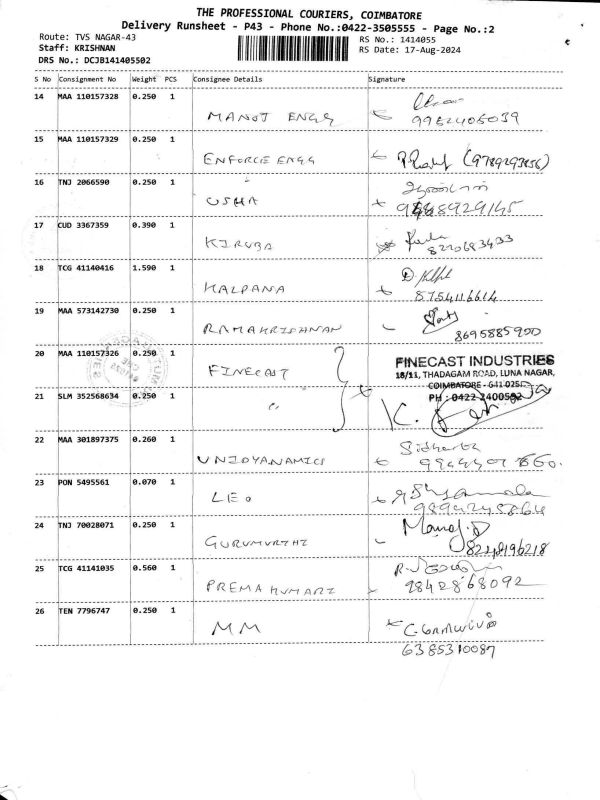 THE PROFESSIONAL COURIERS, COIMBATORE
Delivery Runsheet - P43 - Phone No.:0422-3505555 - Page No.:2
Route: TVS NAGAR-43 RS No.: 1414055
Staff: KRISHNAN RS Date: 17-Aug-2024
DRS No.: DCJB141405502
S No Consignment No Weight PCS Consignee Details Signature
14 MAA 110157328 0.250 1 MANOJ ENGG
9952405039
15 MAA 110157329 0.250 1 ENFORCE ENGG (9789293856)
16 TNJ 2066590 0.250 1 USHA
17 CUD 3367359 0.390 1 KIRUBA
8220683433
18 TCG 41140416 1.590 1 KALPANA
8754116614
19 MAA 573142730 0.250 1 RAMAKRISHNAN
8695885900
20 MAA 110157326 0.250 1 FINECAST
FINECAST INDUSTRIES
18/11, THADAGAM ROAD, LUNA NAGAR,
COIMBATORE - 641 025.
PH : 0422 2400592
21 SLM 352568634 0.250 1 "
K.
22 MAA 301897375 0.260 1 UNIDYANAMICS Sidhartha
23 PON 5495561 0.070 1 LEO
24 TNJ 70028071 0.250 1 GURUMURTHI Manoj.D
8248196218
25 TCG 41141035 0.560 1 PREMA KUMARI
9842868092
26 TEN 7796747 0.250 1 MM
6385310087